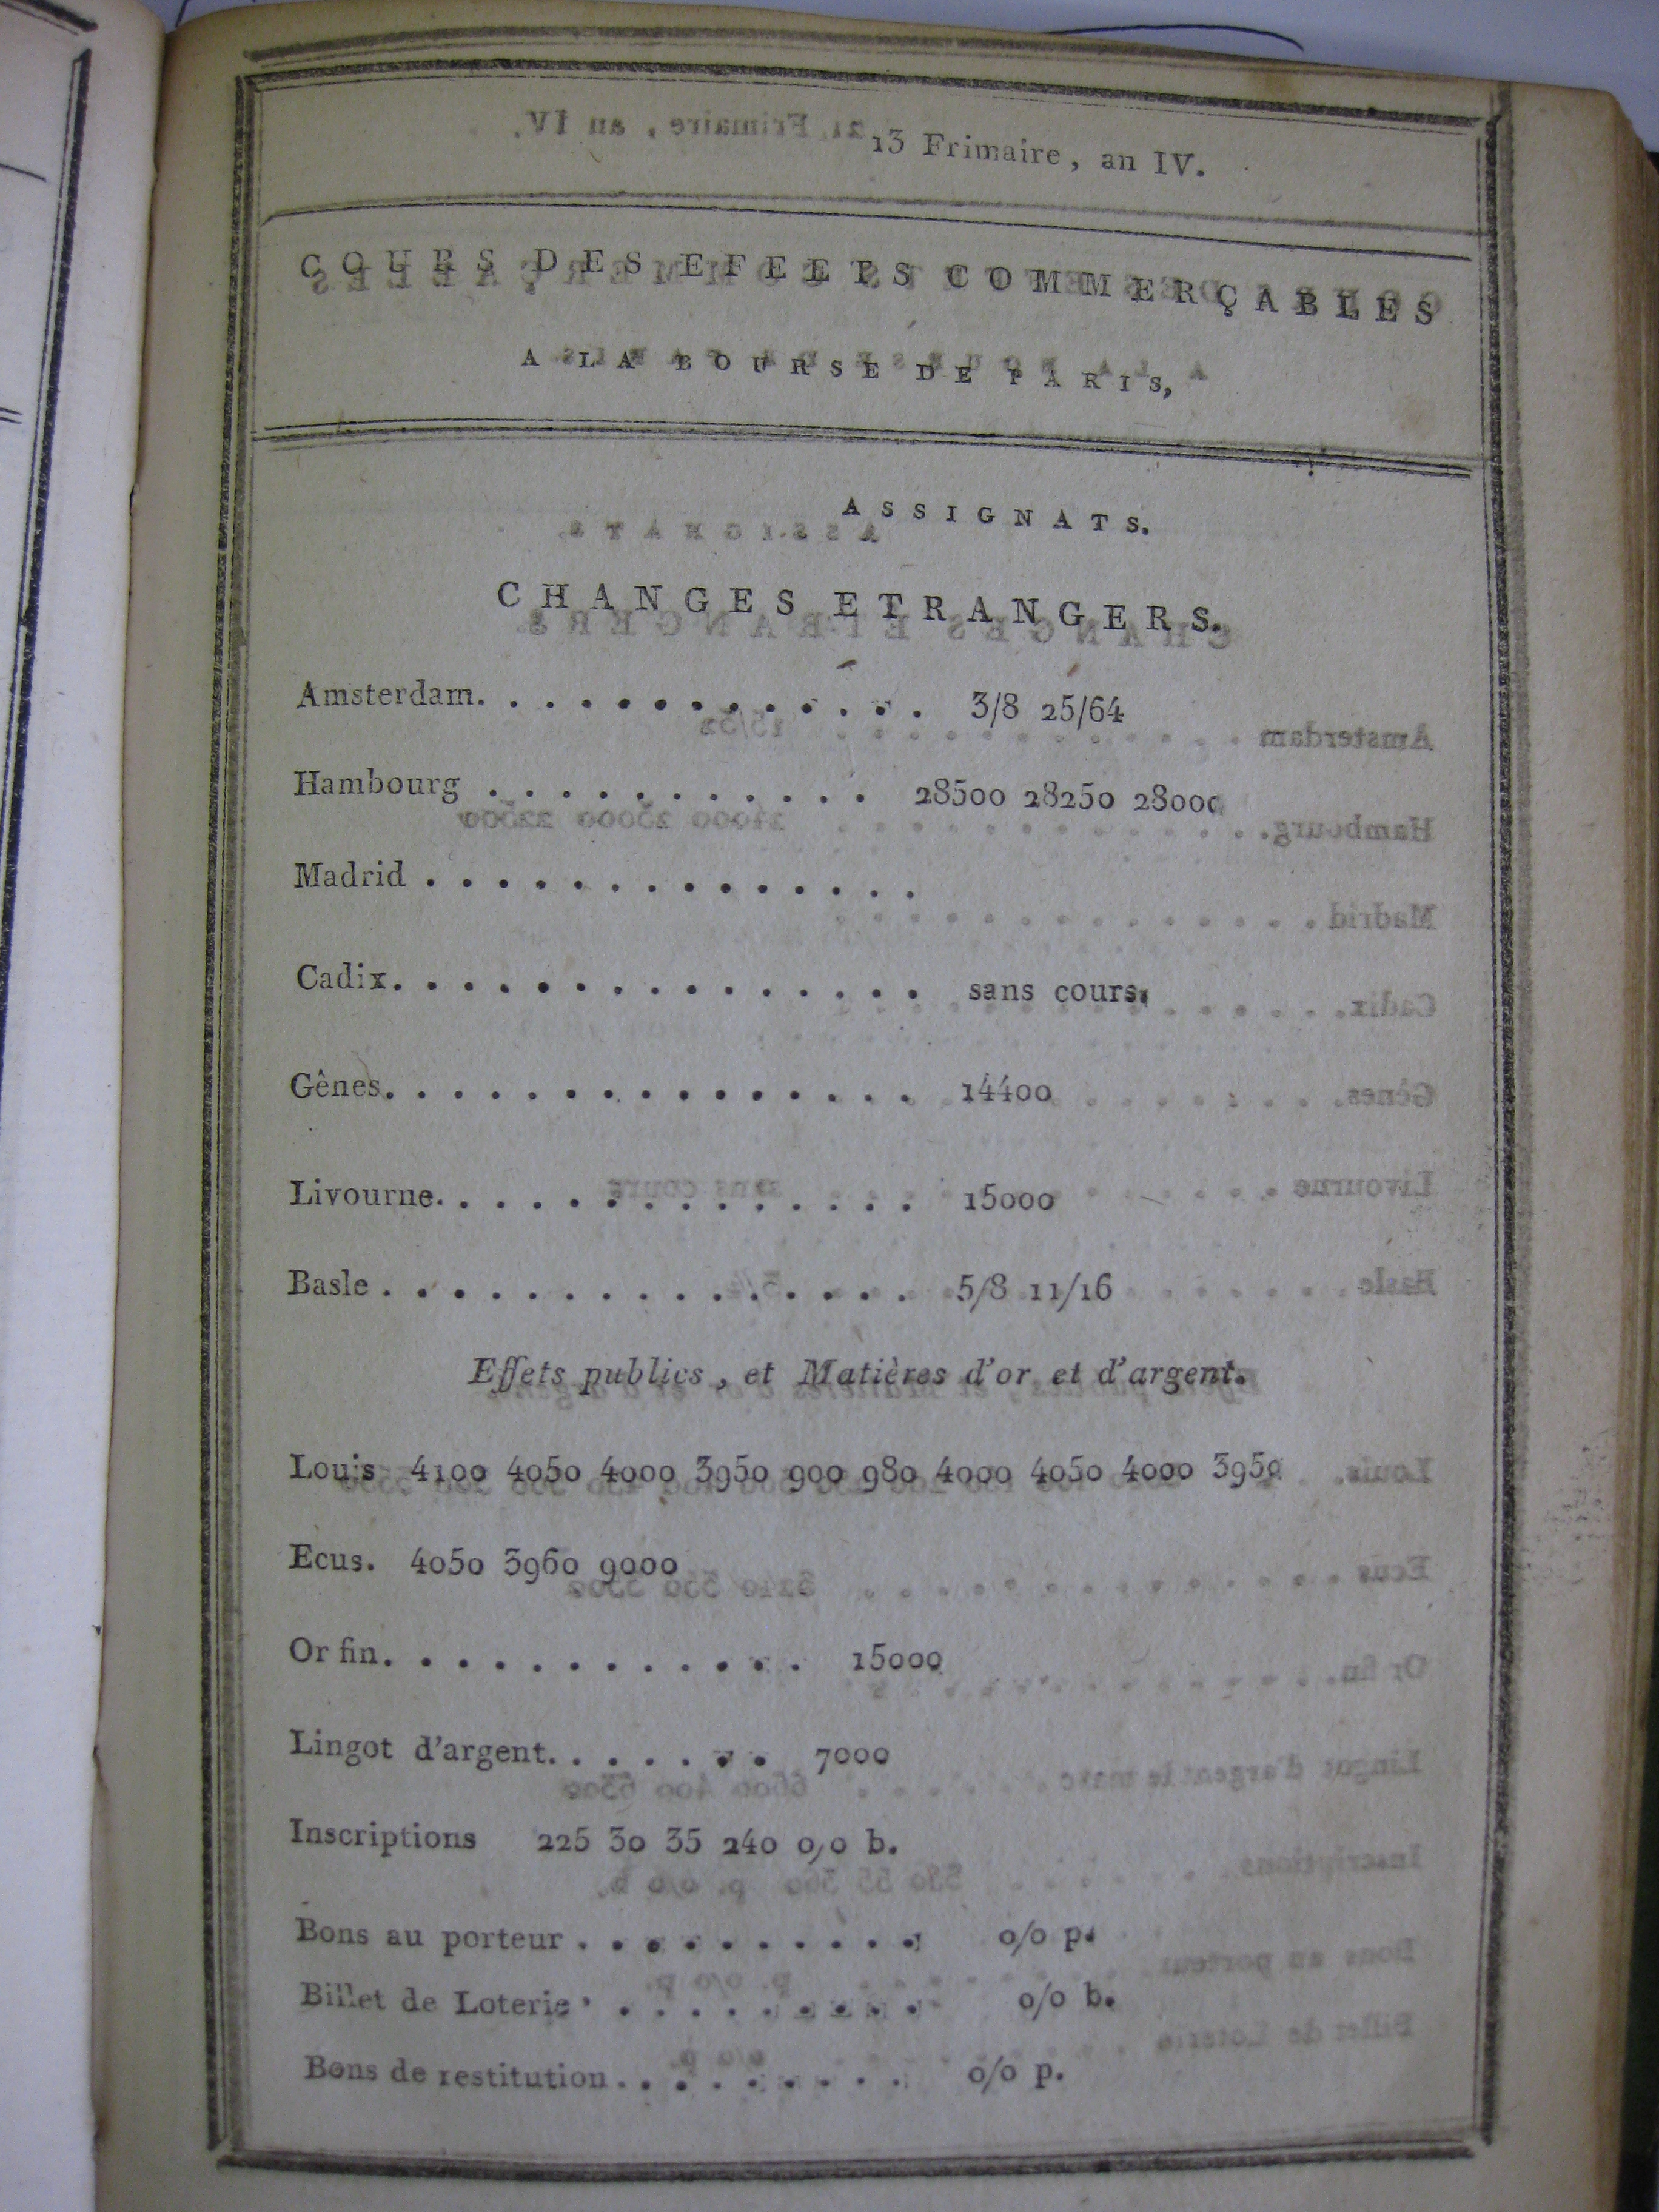 13 Frimaire, an IV.
COURS DES EFFETS COMMERÇABLES
A LA BOURSE DE PARIS,
ASSIGNATS.
CHANGES ETRANGERS.
Amsterdam. . . . . . . . . . . . . 3/8 25/64
Hambourg . . . . . . . . . . . 28500 28250 28000
Madrid . . . . . . . . . . . . . .
Cadix. . . . . . . . . . . . . . . sans cours.
Gênes. . . . . . . . . . . . . . . 14400
Livourne. . . . . . . . . . . . . . 15000
Basle . . . . . . . . . . . . . . . 5/8 11/16
Effets publics, et Matières d'or et d'argent.
Louis 4100 4050 4000 3950 900 980 4000 4050 4000 3950
Ecus. 4050 3960 9000
Or fin. . . . . . . . . . . . 15000
Lingot d'argent. . . . . . . 7000
Inscriptions 225 30 35 240 0/0 b.
Bons au porteur . . . . . . . . . . 0/0 p.
Billet de Loterie . . . . . . . . . 0/0 b.
Bons de restitution . . . . . . . . 0/0 p.